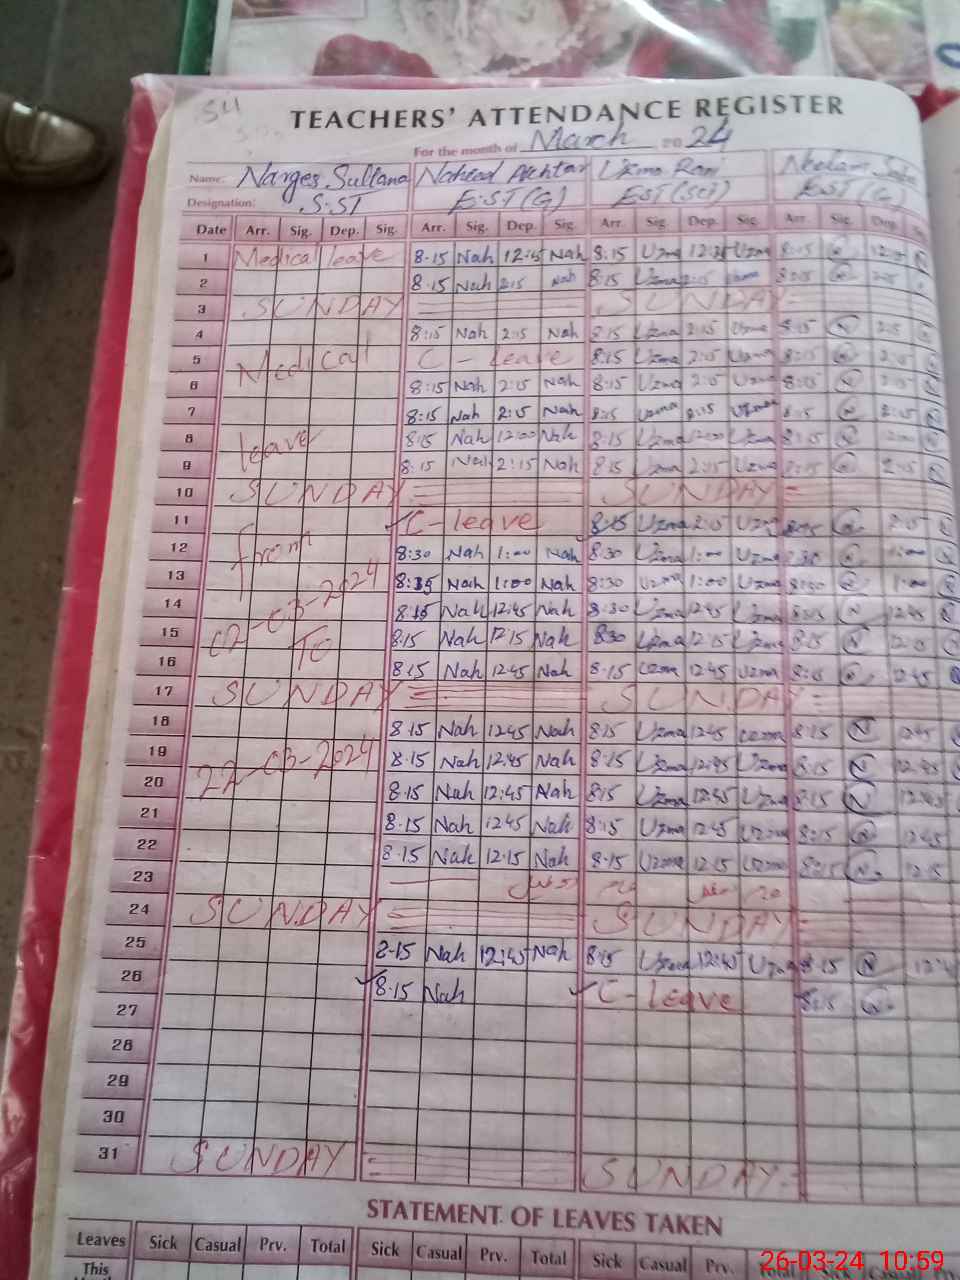 TEACHERS' ATTENDANCE REGISTER
For the month of March 2024
Name: Narges Sultana Naheed Akhtar Uzma Rani
Designation: S.ST E.ST(G) EST(Sci) EST(G)
Date Arr. Sig. Dep. Sig. Arr. Sig. Dep. Sig. Arr. Sig. Dep. Sig. Arr. Sig. Dep.
1 Medical leave 8.15 Nah 12:45 Nah 8:15 Uzma Uzma 8:15
2 8.15 Nah 2:15 Nah 8:15 Uzma 2:15 Uzma 8:15
3 SUNDAY SUNDAY
4 8:15 Nah 2:15 Nah 8:15 Uzma 2:15 Uzma 8:15 N 2:15
5 Medical C - leave 8:15 Uzma 2:15 Uzma 8:15
6 8:15 Nah 2:15 Nah 8:15 Uzma 2:15 Uzma 8:15 N
7 8:15 Nah 2:15 Nah 8:15 Uzma 2:15 Uzma 8:15 2:15
8 leave 8:15 Nah 12:00 Nah 8:15 Uzma 12:00 Uzma 8:15
9 8:15 Nah 2:15 Nah 8:15 Uzma 2:15 Uzma 8:15 2:15
10 SUNDAY SUNDAY
11 from C - leave 8:15 Uzma 2:15 Uzma 8:15 2:15
12 8:30 Nah 1:00 Nah 8:30 Uzma 1:00 Uzma 8:30 1:00
13 02-03-2024 Nah 1:00 Nah 8:30 Uzma 1:00 Uzma 1:00
14 8:15 Nah 12:45 Nah 8:30 Uzma 12:45 Uzma 8:15 N 12:45
15 To 8.15 Nah 12:15 Nah 8:30 Uzma 12:15 Uzma 8:15 N 12:15
16 8.15 Nah 12.45 Nah 8.15 Uzma 12.45 Uzma 8:15 12.45
17 SUNDAY SUNDAY
18 8.15 Nah 12.45 Nah 8.15 Uzma 12.45 Uzma 8:15 N 12.45
19 22-03-2024 8.15 Nah 12:45 Nah 8.15 Uzma 12:45 Uzma 8.15 N 12.45
20 8.15 Nah 12:45 Nah 8:15 Uzma 12:45 Uzma 8:15 N 12:45
21 8.15 Nah 12.45 Nah 8.15 Uzma 12.45 Uzma 8:15 N 12.45
22 8.15 Nah 12.15 Nah 8.15 Uzma 12.15 Uzma 8:15 N 12.15
23
24 SUNDAY SUNDAY
25 8.15 Nah 12:45 Nah 8:15 Uzma 12:45 Uzma 8.15 N
26 8.15 Nah C - leave 8:15 N
27
28
29
30
31 SUNDAY SUNDAY
STATEMENT OF LEAVES TAKEN
Leaves Sick Casual Prv. Total Sick Casual Prv. Total Sick Casual Prv.
This
26-03-24 10:59